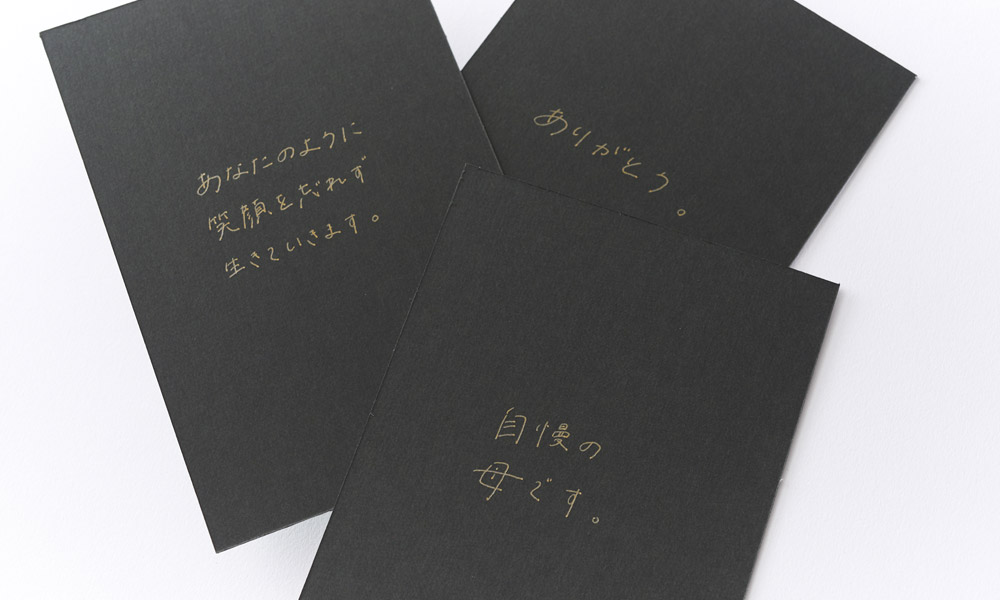 あなたのように
笑顔を忘れず
生きていきます。
ありがとう。
自慢の
母です。